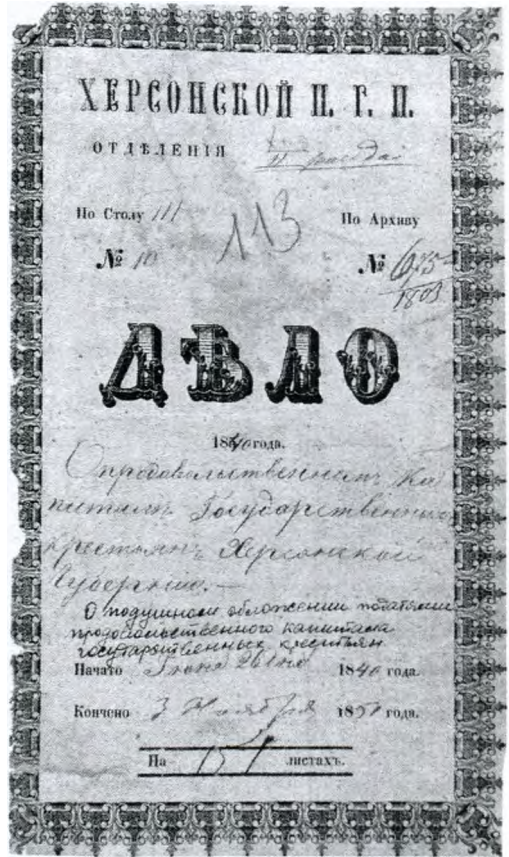 ХЕРСОНСКОЙ П. Г. И.
ОТДѢЛЕНІЯ
По Столу III
113
По Архиву
№ 10
№ 675
1803
ДѢЛО
1840 года.
О продовольственномъ Ка
питалѣ Государственныхъ
крестьянъ Херсонской
Губерніи. —
О подушном обложении податями
продовольственного капитала
государственных крестьян
Начато Іюня 1840 года.
Кончено 3 Ноября 1851 года.
На 151 листахъ.